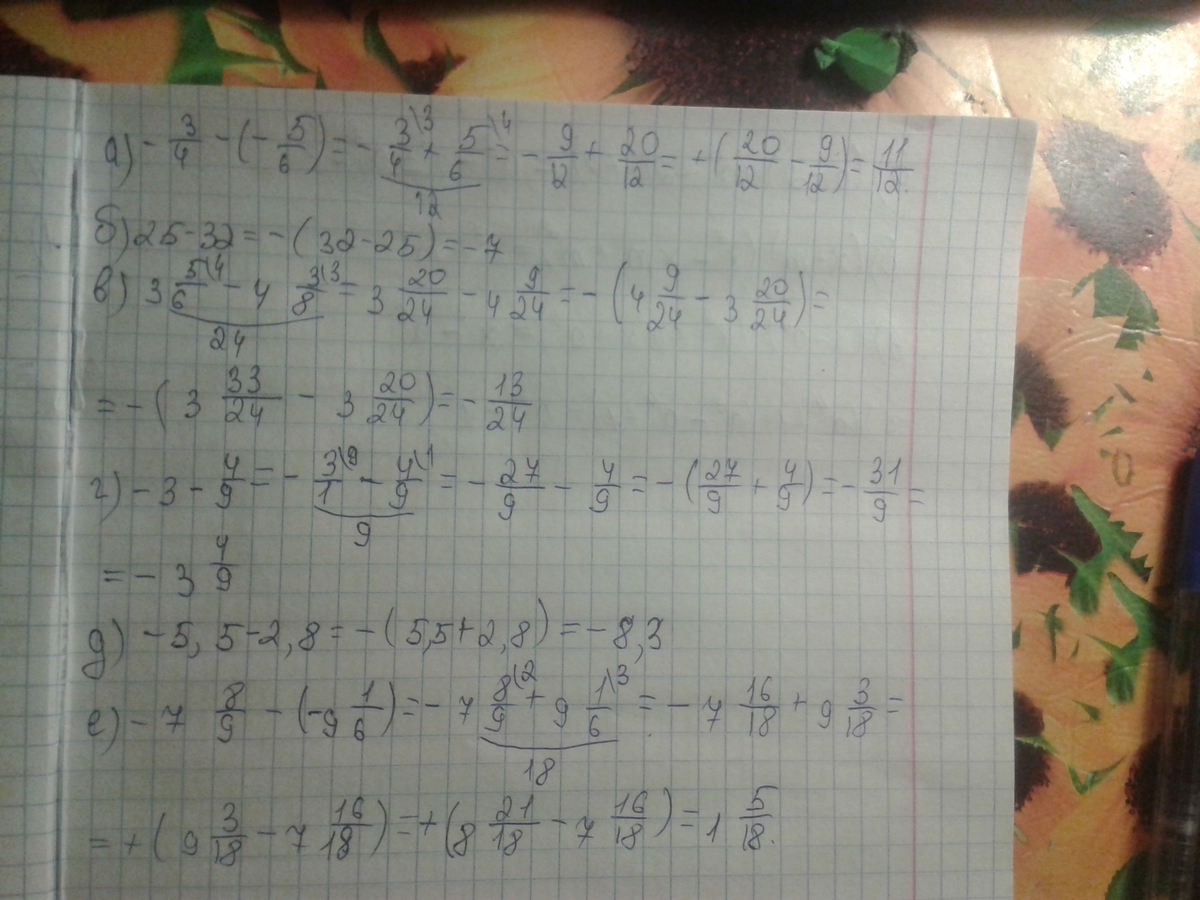 а) - 3/4 - (- 5/6) = - 3\3/4 + 5\4/6 = - 9/12 + 20/12 = + (20/12 - 9/12) = 11/12.
12
б) 25 - 32 = - (32 - 25) = - 7
в) 3 5\4/6 - 4 3\3/8 = 3 20/24 - 4 9/24 = - (4 9/24 - 3 20/24) =
24
= - (3 33/24 - 3 20/24) = - 13/24
г) - 3 - 4/9 = - 3\9/1 - 4\1/9 = - 27/9 - 4/9 = - (27/9 + 4/9) = - 31/9 =
9
= - 3 4/9
д) - 5,5 - 2,8 = - (5,5 + 2,8) = - 8,3
е) - 7 8/9 - (- 9 1/6) = - 7 8\2/9 + 9 1\3/6 = - 7 16/18 + 9 3/18 =
18
= + (9 3/18 - 7 16/18) = + (8 21/18 - 7 16/18) = 1 5/18.